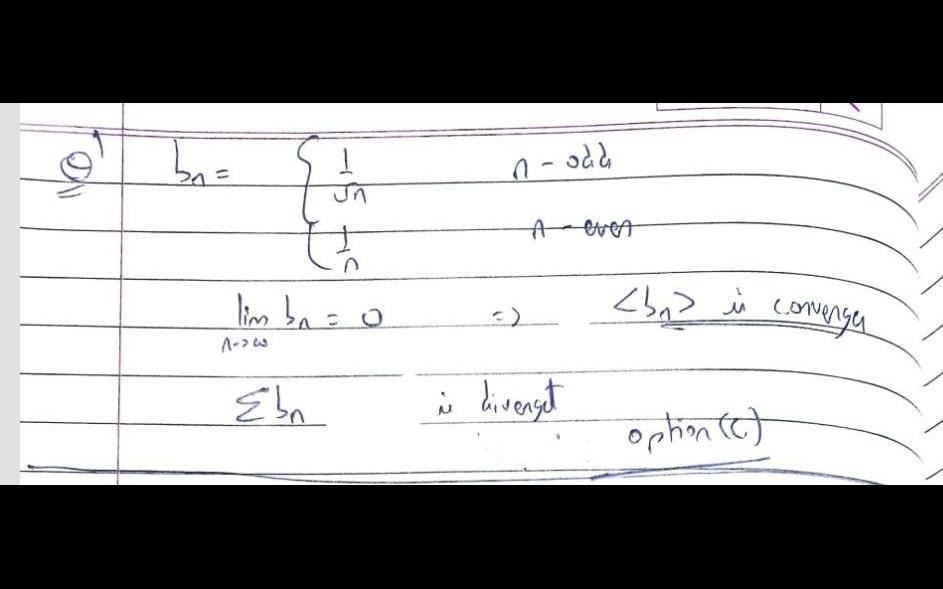 Q' bₙ = { 1/√n n - odd
1/n n - even
lim bₙ = 0 => <bₙ> is converge
n->∞
Σbₙ is diverget
option (c)